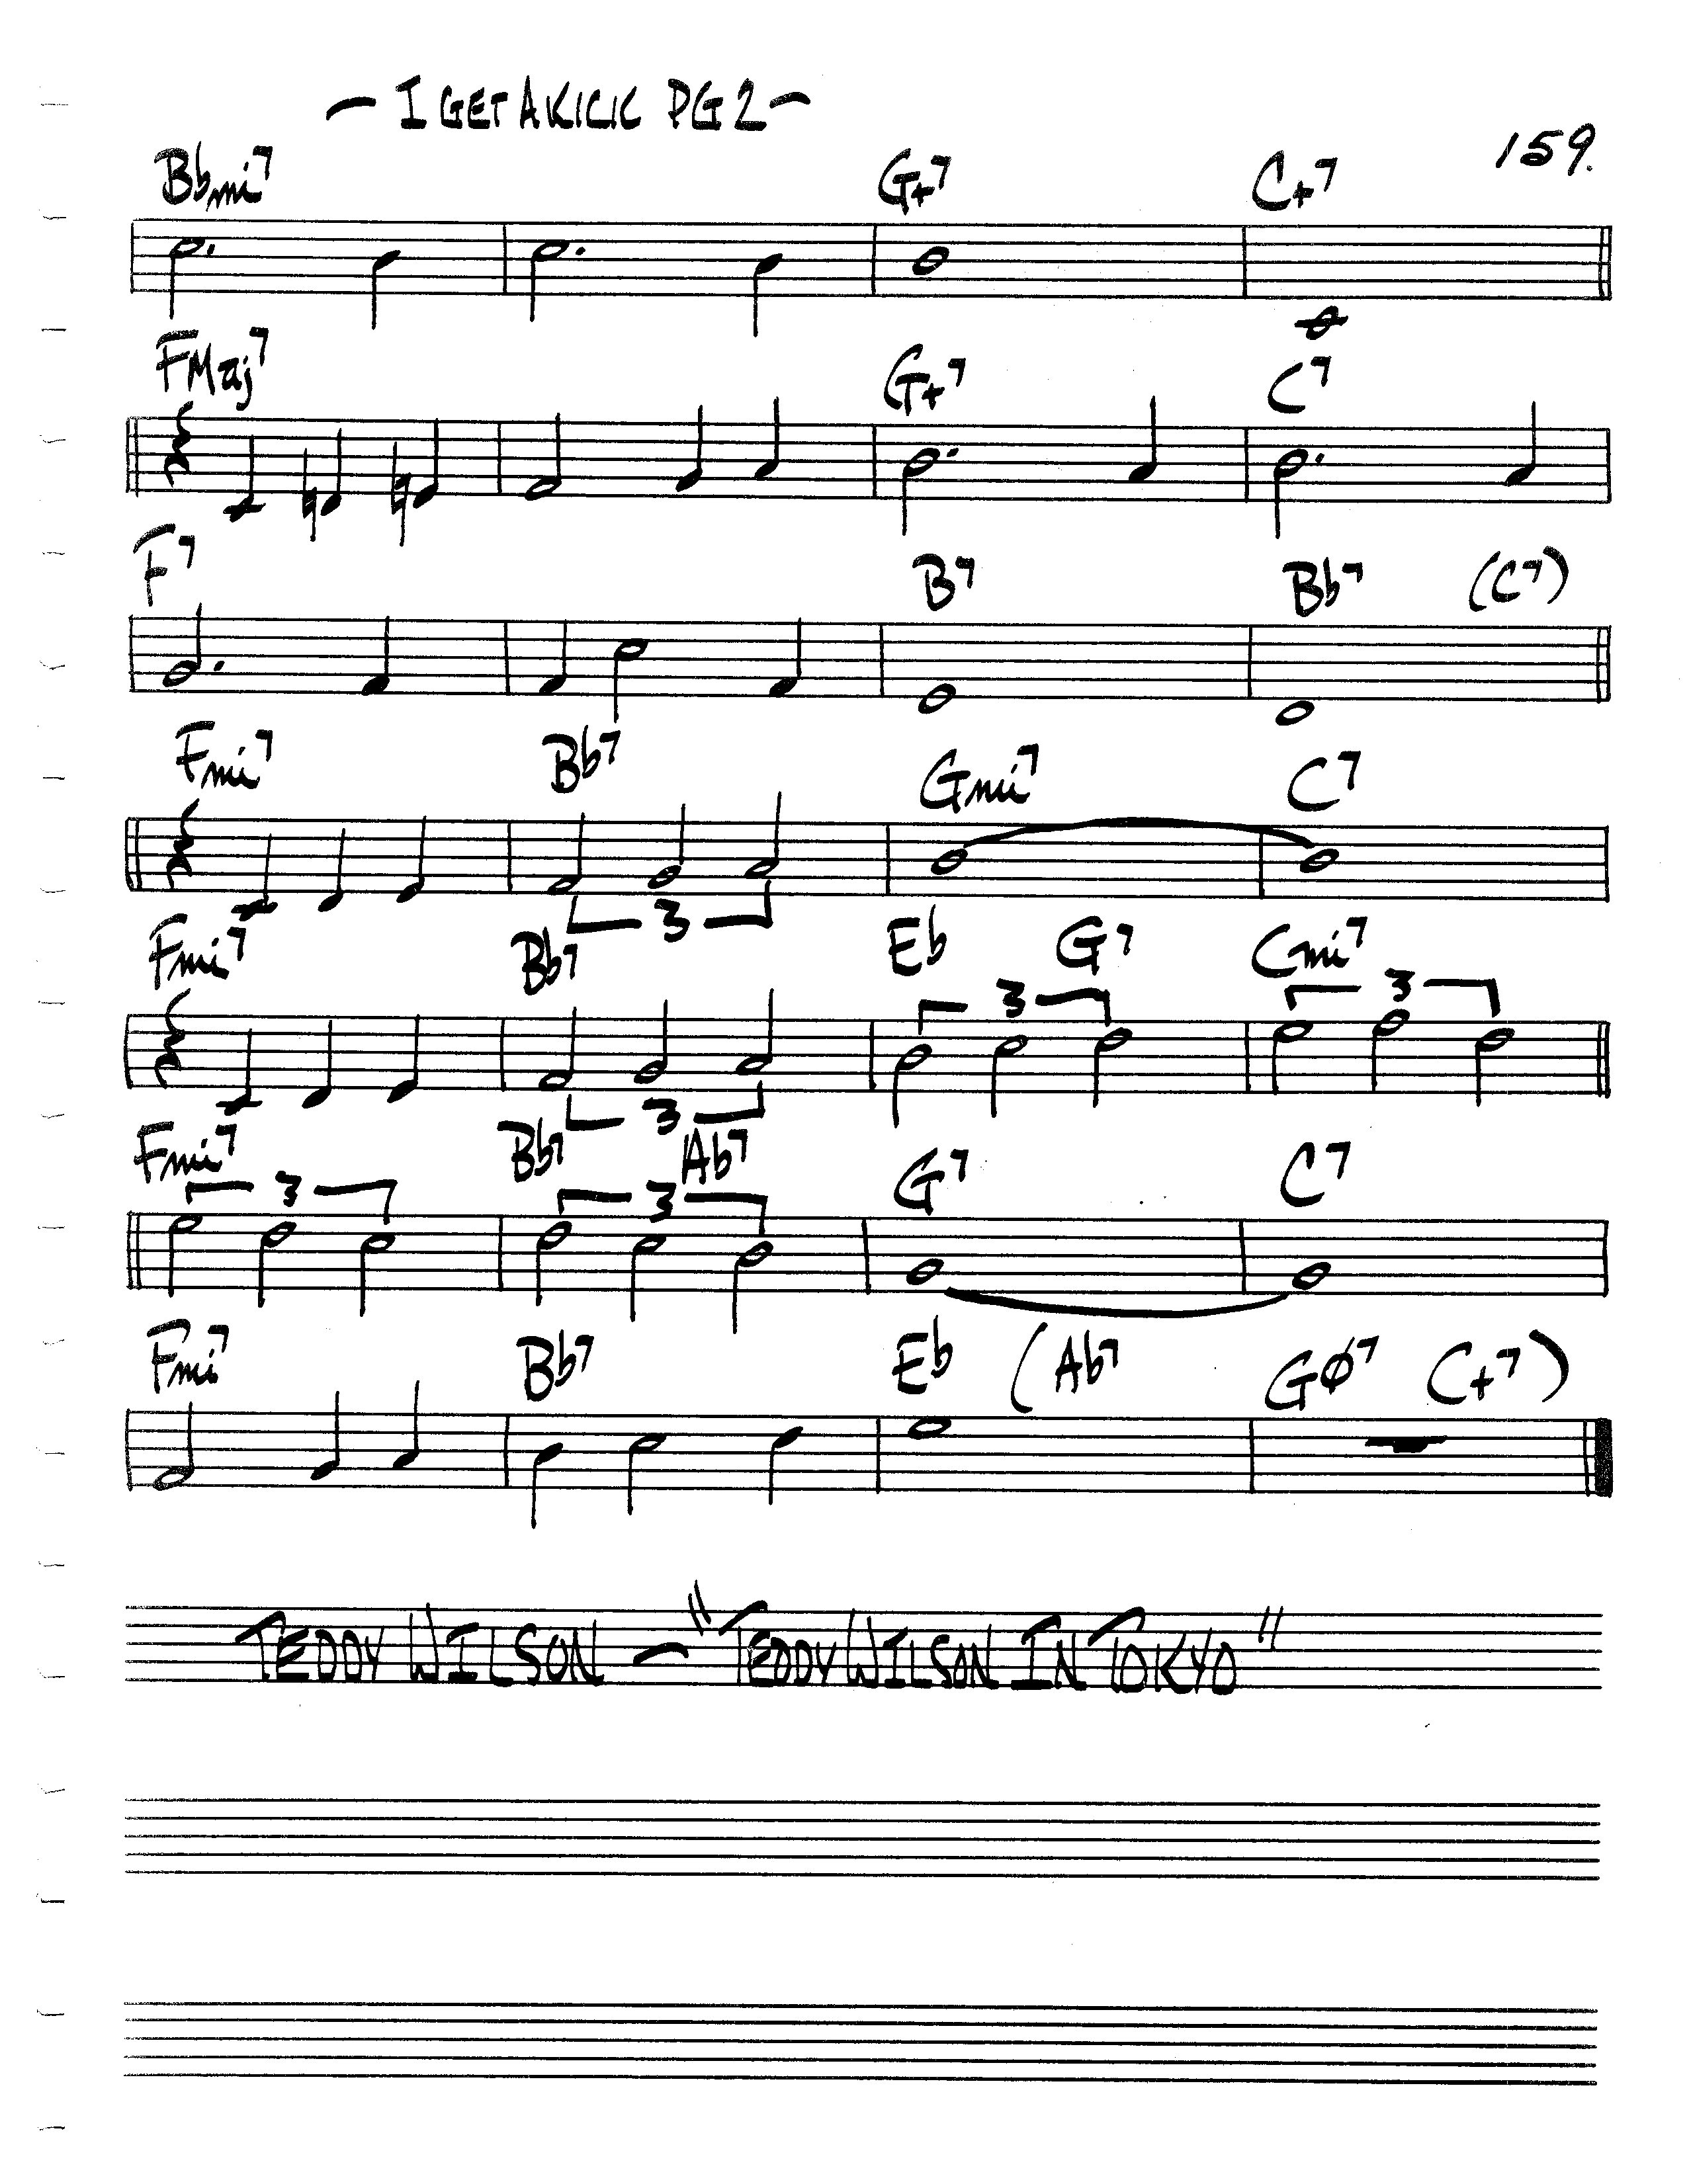 — I GET A KICK PG 2 —
159.
Bbmi7 G+7 C+7
FMaj7 G+7 C7
F7 B7 Bb7 (C7)
Fmi7 Bb7 Gmi7 C7
3
Fmi7 Bb7 Eb G7 Cmi7
3 3 3
Fmi7 Bb7 Ab7 G7 C7
3 3
Fmi7 Bb7 Eb (Ab7 GØ7 C+7)
TEDDY WILSON — "TEDDY WILSON IN TOKYO"